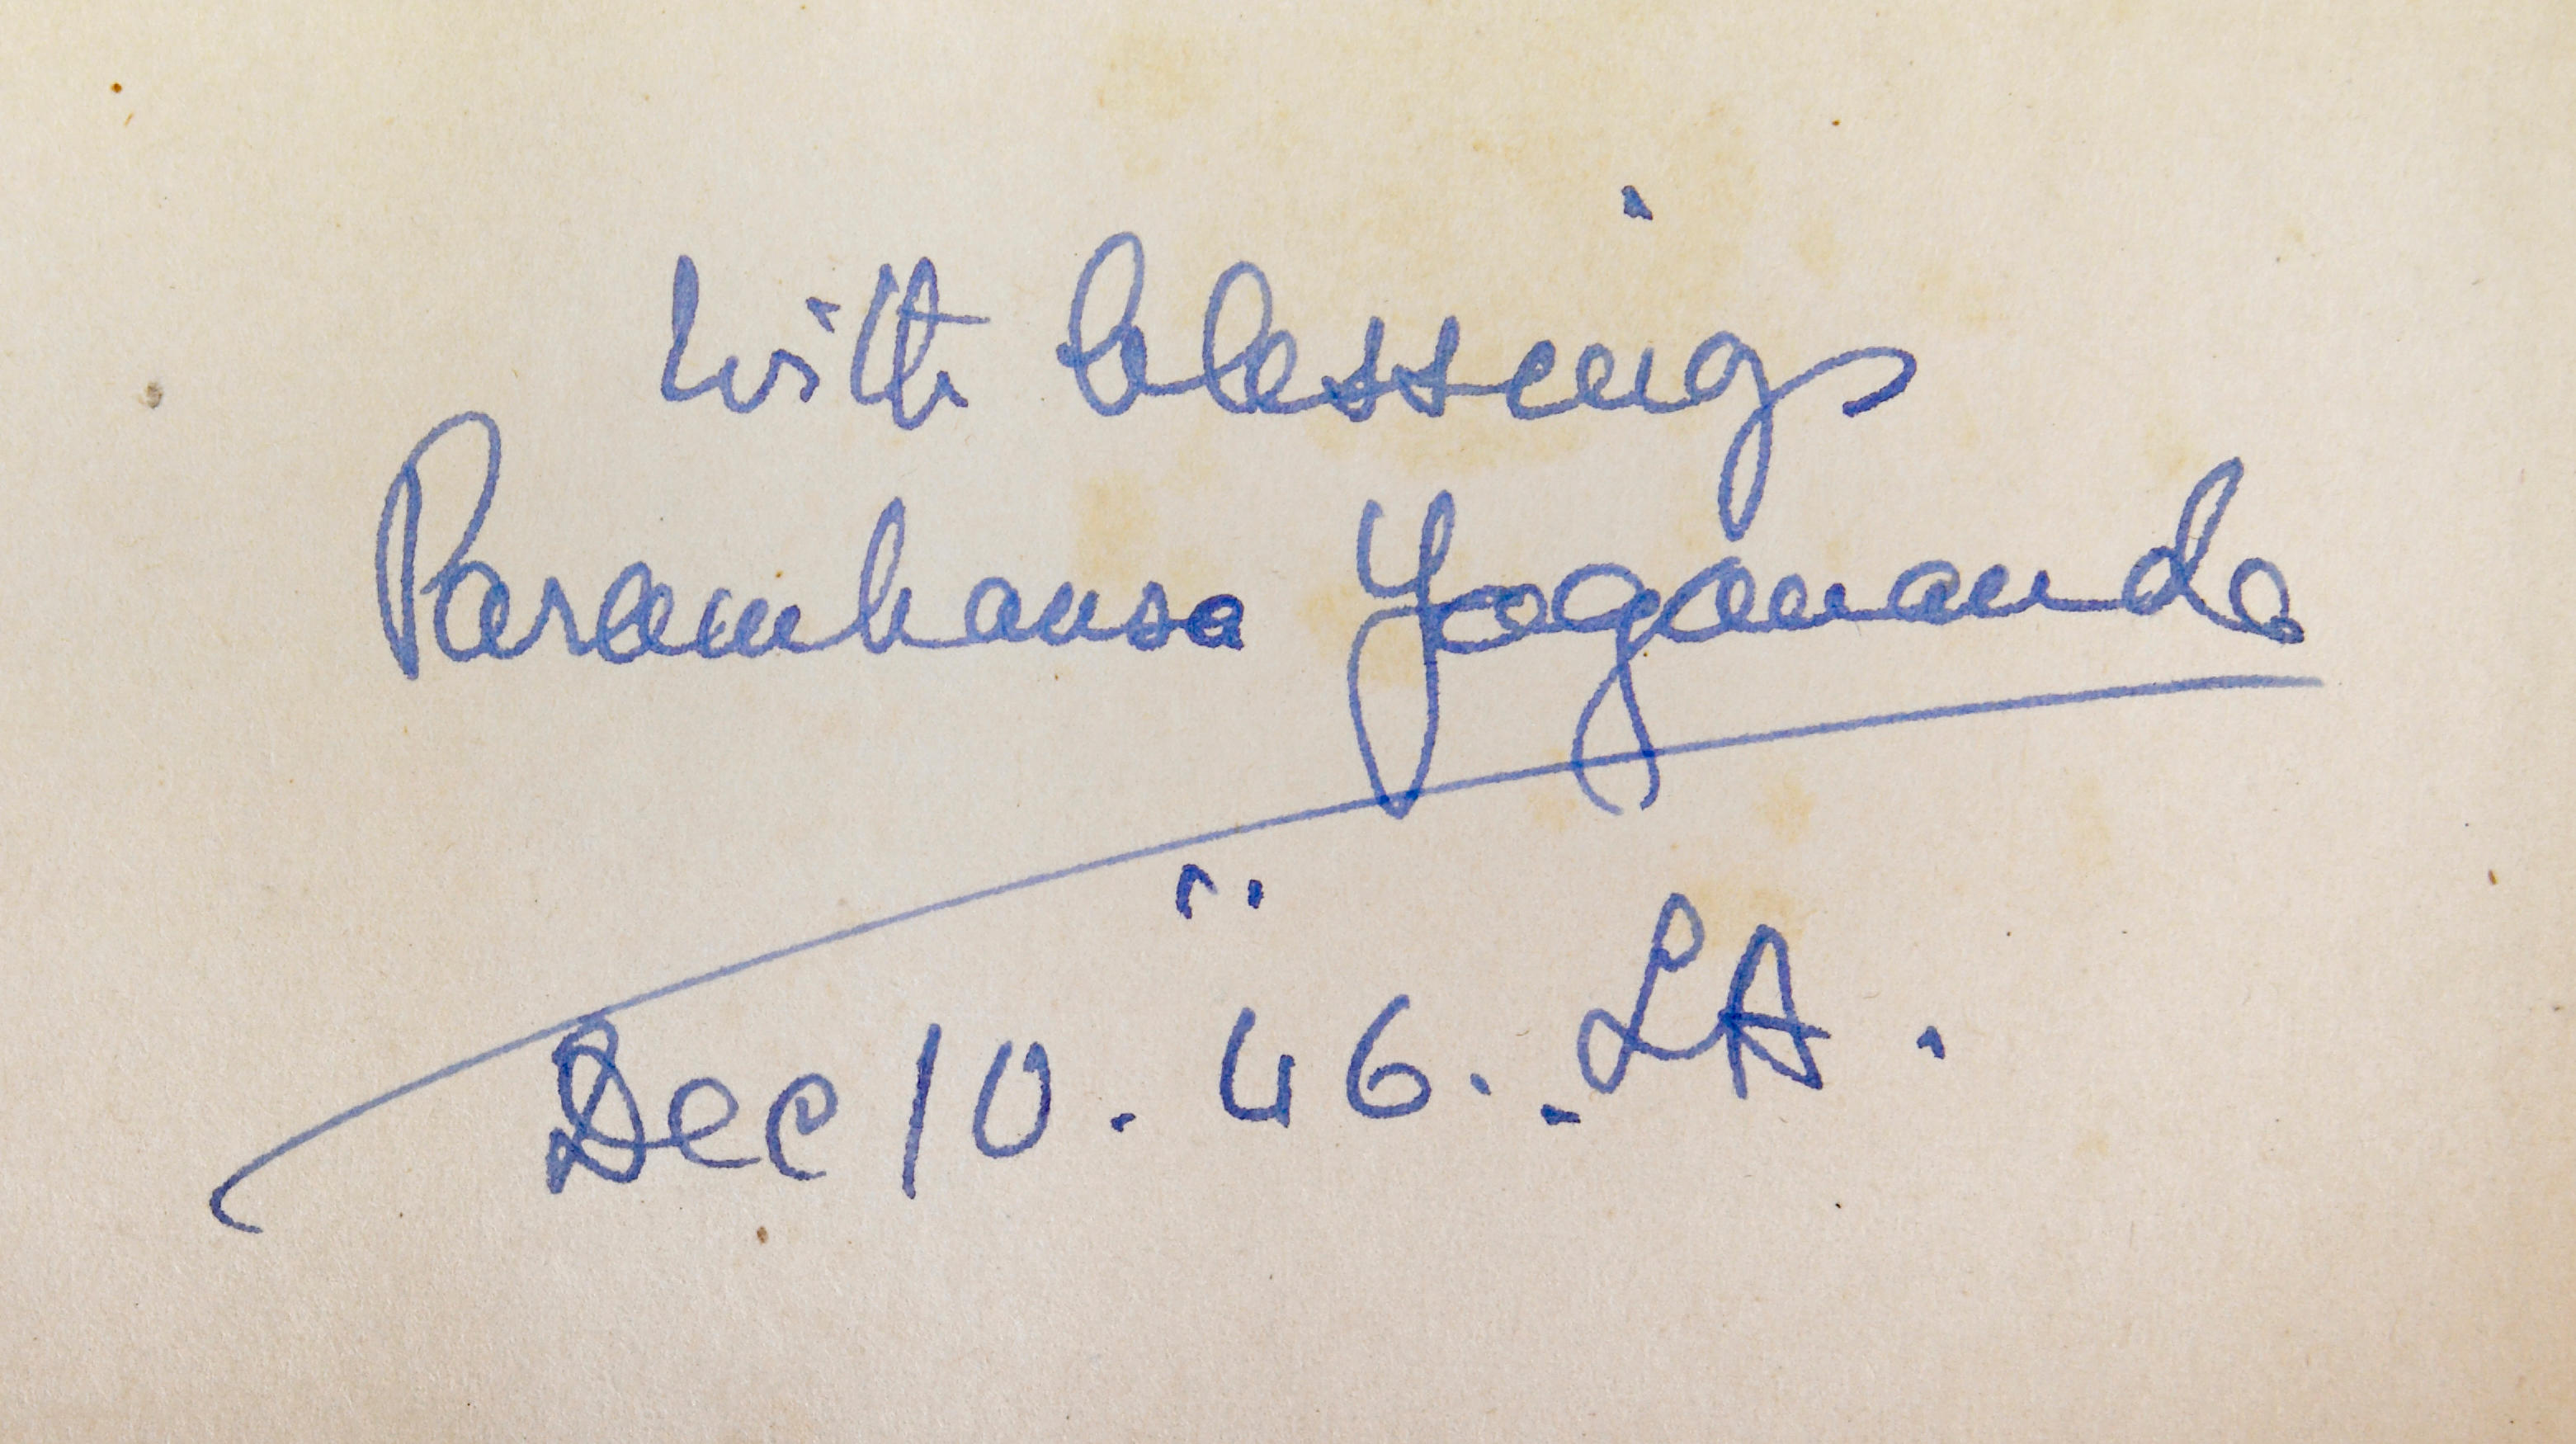 With blessings
Paramhansa Yogananda
Dec 10. 46. LA.